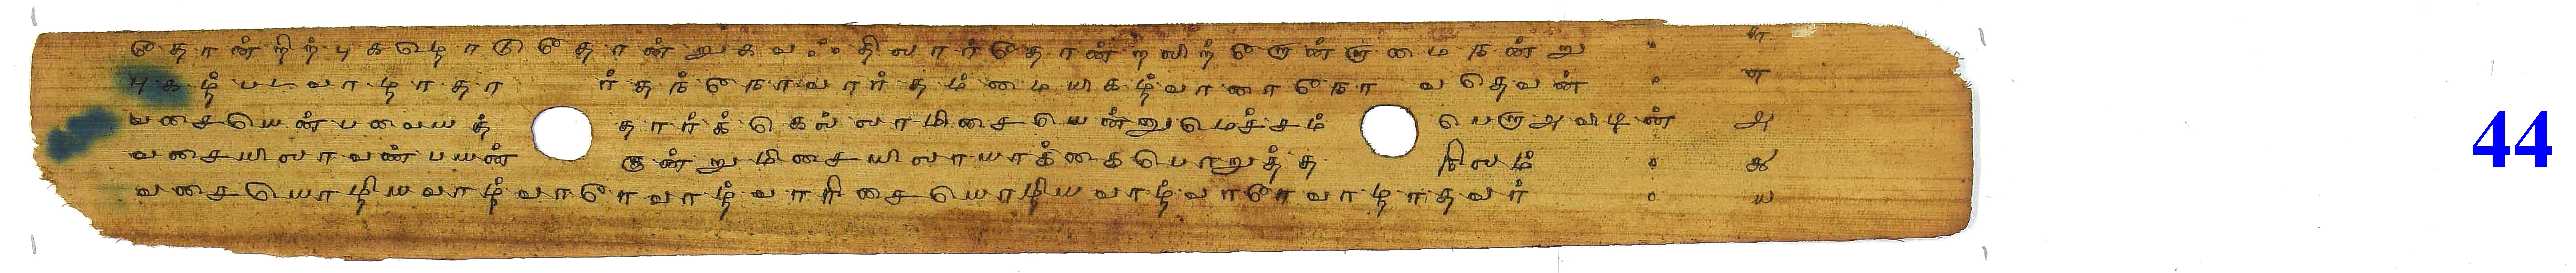 தோன்றிற்புகழொடுதோன்றுகவஃதிலார்தோன்றலிற்றோன்றாமைநன்று ௬
புகழ்படவாழாதா ர்தந்நோவார்தம்மையிகழ்வாரைநோ வதெவன் ௭
வசையென்பவையத் தார்க்கெல்லாமிசையென்னுமெச்சம் பெறாஅவிடின் ௮
வசையிலாவண்பயன் குன்றுமிசையிலாயாக்கைபொறுத்த நிலம் ௯
வசையொழியவாழ்வாரேவாழ்வாரிசையொழியவாழ்வாரேவாழாதவர் ௰
44